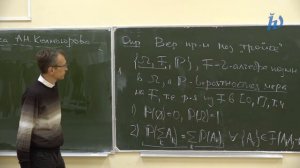 са А.Н. Колмогорова
Опр Вер. пр-м наз. тройка
{Ω, F, P}, F - σ-алгебра подмн.
в Ω, а P - вероятностная мера
на F, т.е. из F в [0,1], т.ч.
1) P(∅)=0, P(Ω)=1
2) P(∑Aᵢ) = ∑P(Aᵢ) ∀{Aᵢ}∈F